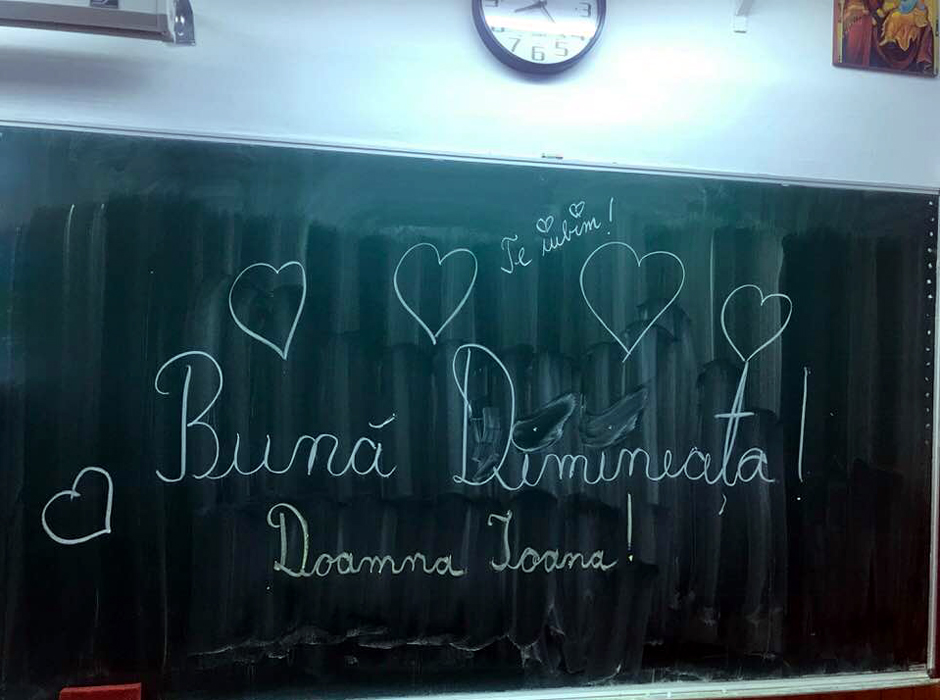 3
7 6 5
Te iubim!
Bună Dimineața!
Doamna Ioana!